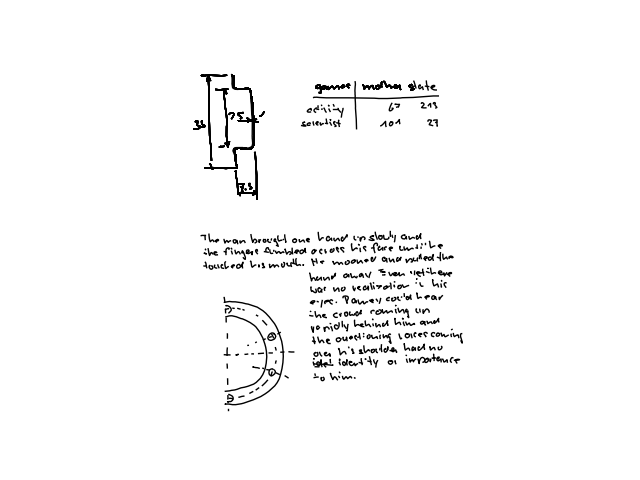 games mother state
activity 67 213
scientist 101 27
35
25
7.5
The man brought one hand up slowly and
the fingers fumbled across his face until he
touched his mouth. He moaned and pulled the
hand away. Even yet there
was no realization in his
eyes. Parney could hear
the crowd coming up
rapidly behind him and
the questioning voices coming
over his shoulder had no
identity or importance
to him.